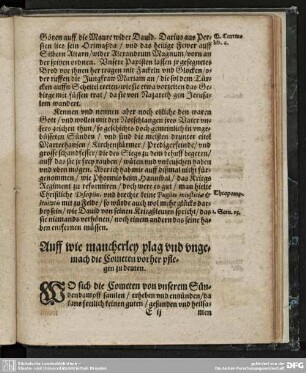 Götzen auff die Maure wider Dauid. Darius aus Per-
sien lies sein Orimasda / vnd das heilige Fewer auff
Silbern Altarn / wider Alexandrum Magnum / vorn an
der spitzen ordnen. Unsere Papisten lassen jr gesegnetes
Brod vor jhnen her tragen mit Fackeln vnd Glocken / o-
der ruffen die Jungfraw Mariam an / die sol dem Tür-
cken auffn Scheitel tretten / wie sie etwa vorzeiten das Ge-
birge mus füssen trat / da sie von Nazareth gen Jerusa-
lem wandert.
Kennen vnd nennen aber noch etliche den waren
Gott / vnd wollen vnter den Nachhlangen jres Vater vn-
sers zeichen thun / so geschichts doch gemeiniglich im vnge-
büsseten Sünden / vnd sind die meisten drunter eitel
Marterhansen / Kirchenstürmer / Predigerfeinde / vnd
grosse schandfesser / die den Sieg zu dem behuff begeren /
auff das sie zu fressen / rauben / huren vnd vnkeuschen haben
vnd vben mögen. Aber ich hab mir auff dismal nicht für-
genommen / wie Phormio beim Hannibal / das Kriegs
Regiment zu reformiren / doch were es gut / man hette
Christliche Disciplin / vnd der ehre seine
mit zu Felde / so würde auch wol mehr glücks dar-
bey sein / wie Dauid von seinen Kriegsleuten spricht / das
sie niemands verhönen / noch einem andern das seine ha-
ben entfremen müssen.
Q. Curtius
lib. 4.
Theopomp.
1. Sam. 25.
Auff wie mancherley plag vnd vnge-
mach die Cometen vorher pfle-
gen zu deuten.
WO sich die Cometen von vnserem Sün-
dendampff samlen / erheben vnd entzünden / da
kans freilich keinen guten / gesunden vnd heilsa-
E ij
men